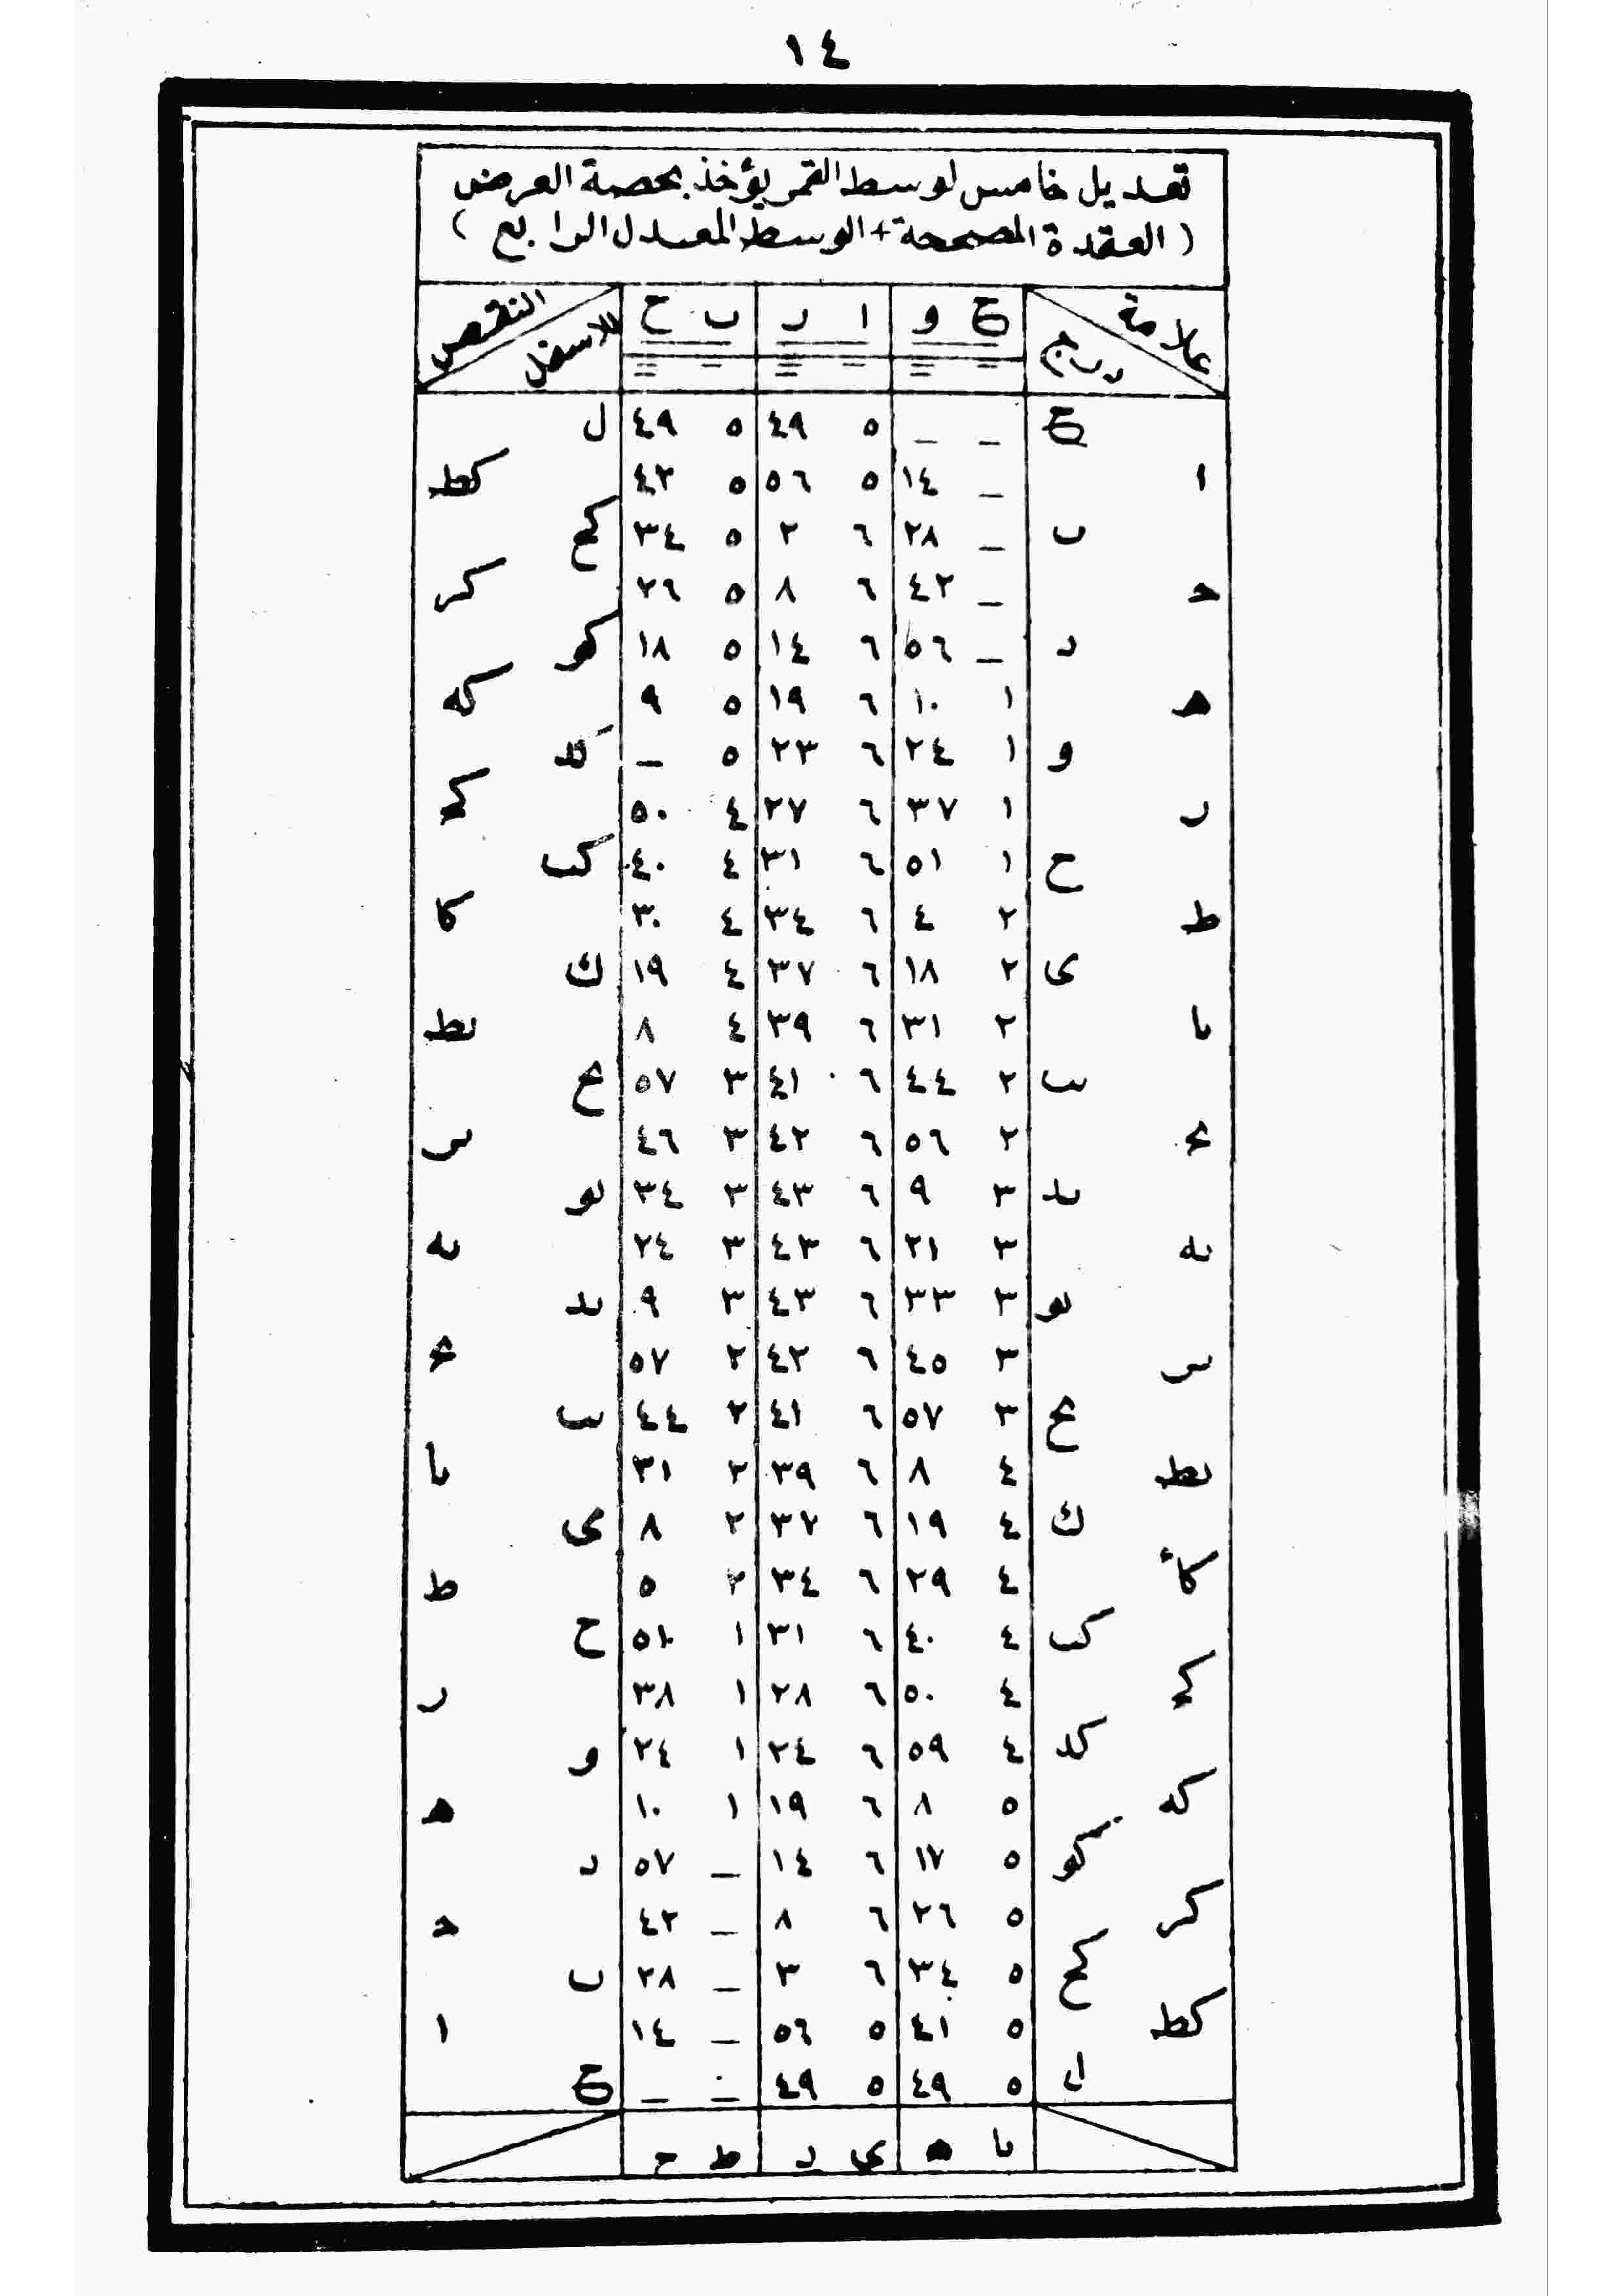 ١٤
تعديل خامس لوسط القمر يؤخذ بحصة العرض
( العقدة المصححة + الوسط المعدل الرابع )
علامة درج ح و ا ر ب ح الاسفل النقص
ح _ _ ٥ ٤٩ ٥ ٤٩ ل
ا _ ١٤ ٥ ٥٦ ٥ ٤٢ كط
ب _ ٢٨ ٦ ٢ ٥ ٣٤ كح
حـ _ ٤٢ ٦ ٨ ٥ ٢٦ كر
د _ ٥٦ ٦ ١٤ ٥ ١٨ كو
ه ١ ١٠ ٦ ١٩ ٥ ٩ كه
و ١ ٢٤ ٦ ٢٣ ٥ _ كد
ر ١ ٣٧ ٦ ٢٧ ٤ ٥٠ كحـ
ح ١ ٥١ ٦ ٣١ ٤ ٤٠ كب
ط ٢ ٤ ٦ ٣٤ ٤ ٣٠ كا
ى ٢ ١٨ ٦ ٣٧ ٤ ١٩ ك
يا ٢ ٣١ ٦ ٣٩ ٤ ٨ يط
يب ٢ ٤٤ ٦ ٤١ ٣ ٥٧ يح
يحـ ٢ ٥٦ ٦ ٤٢ ٣ ٤٦ ير
يد ٣ ٩ ٦ ٤٣ ٣ ٣٤ يو
يه ٣ ٢١ ٦ ٤٣ ٣ ٢٤ يه
يو ٣ ٣٣ ٦ ٤٣ ٣ ٩ يد
ير ٣ ٤٥ ٦ ٤٢ ٢ ٥٧ يحـ
يح ٣ ٥٧ ٦ ٤١ ٢ ٤٤ يب
يط ٤ ٨ ٦ ٣٩ ٢ ٣١ يا
ك ٤ ١٩ ٦ ٣٧ ٢ ٨ ى
كا ٤ ٢٩ ٦ ٣٤ ٢ ٥ ط
كب ٤ ٤٠ ٦ ٣١ ١ ٥١ ح
كحـ ٤ ٥٠ ٦ ٢٨ ١ ٣٨ ر
كد ٤ ٥٩ ٦ ٢٤ ١ ٢٤ و
كه ٥ ٨ ٦ ١٩ ١ ١٠ ه
كو ٥ ١٧ ٦ ١٤ _ ٥٧ د
كر ٥ ٢٦ ٦ ٨ _ ٤٢ حـ
كح ٥ ٣٤ ٦ ٣ _ ٢٨ ب
كط ٥ ٤١ ٥ ٥٦ _ ١٤ ا
ل ٥ ٤٩ ٥ ٤٩ _ _ ح
يا ه ى د ط حـ